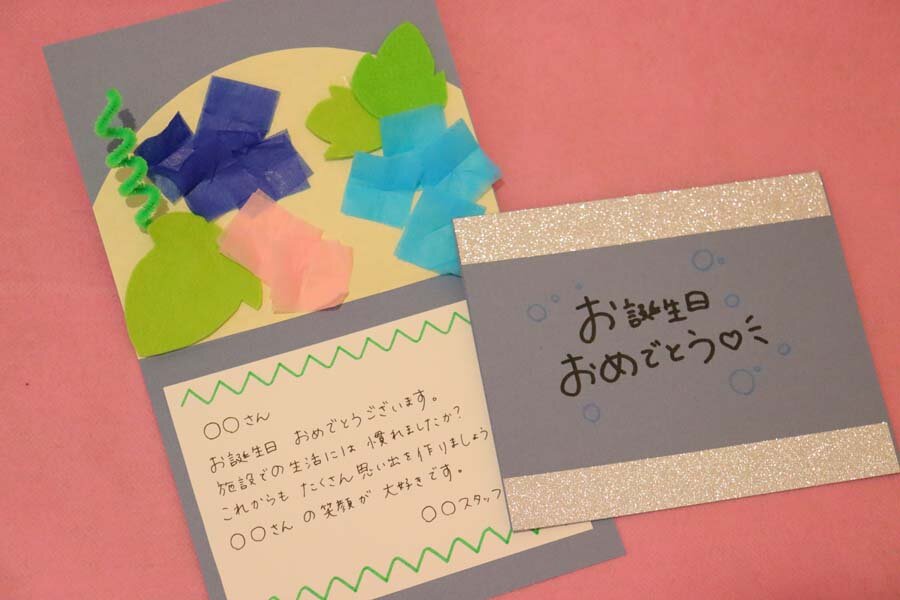 〇〇さん
お誕生日 おめでとうございます。
施設での生活には 慣れましたか?
これからも たくさん思い出を作りましょう
〇〇さん の笑顔が 大好きです。
〇〇スタッフ
お誕生日
おめでとう♡